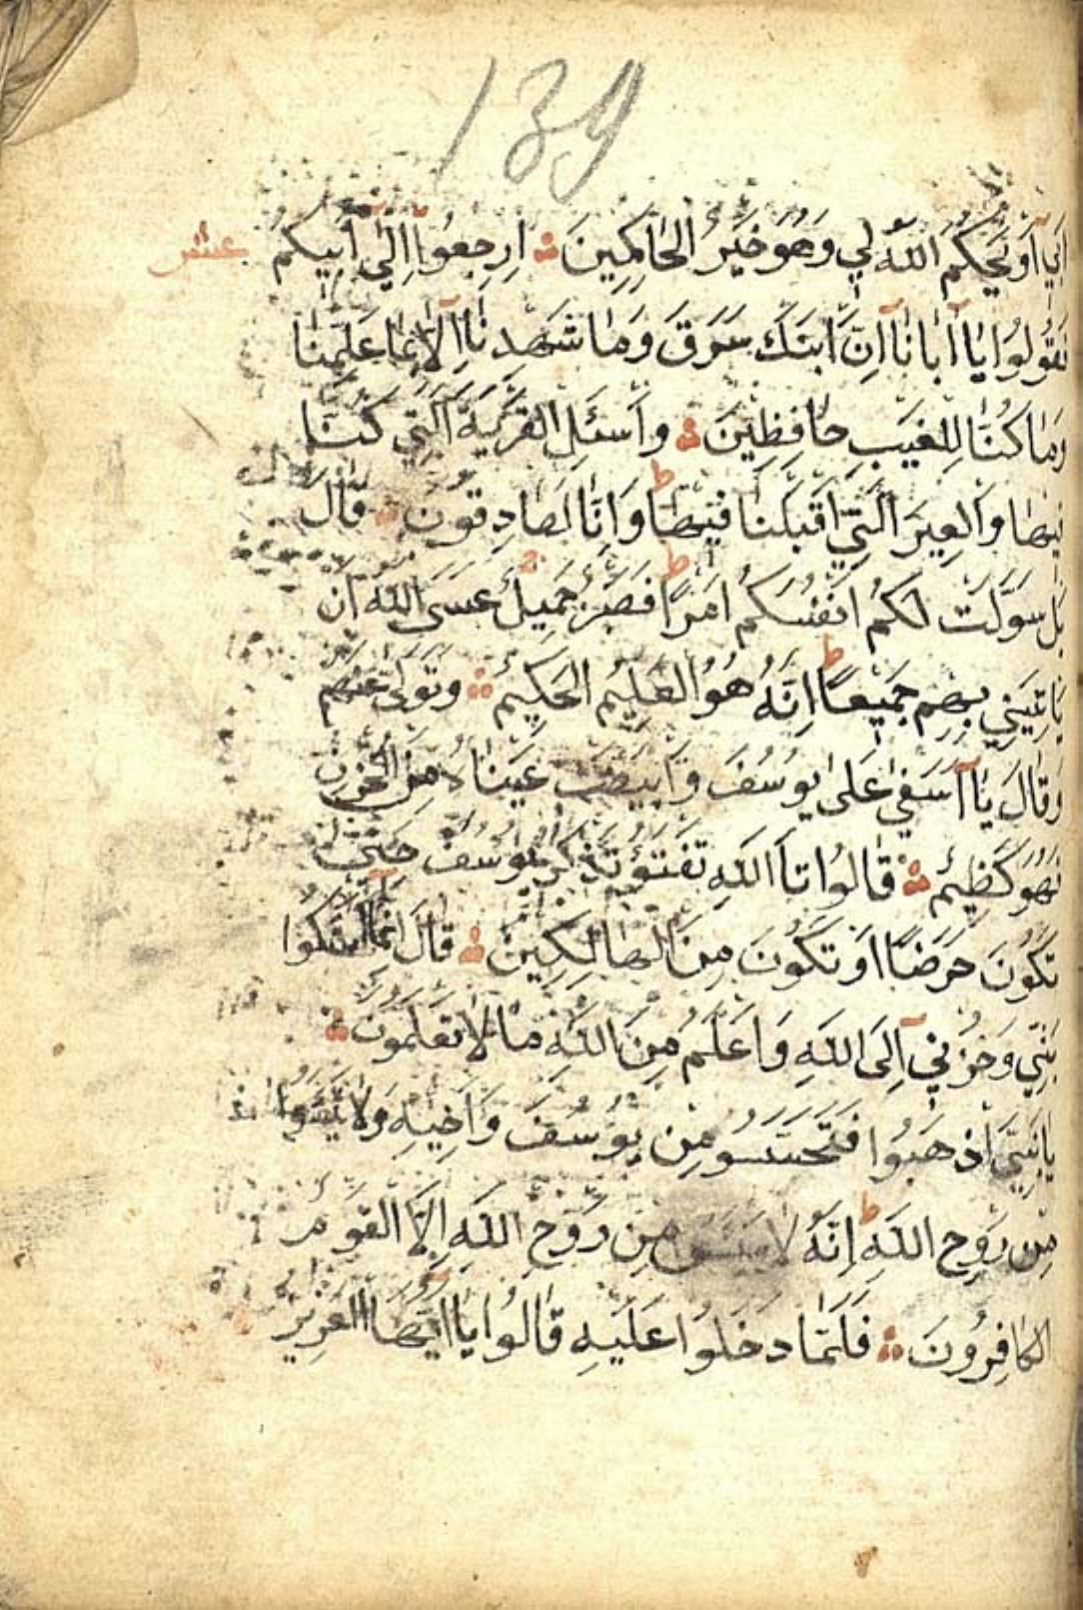 139
اَبِي اَوْ يَحْكُمَ اللّٰهُ لِي وَهُوَ خَيْرُ الْحَاكِمِينَ ارِجِعُوا اِلٰى اَبِيكُمْ عشر
فَقُولُوا يَا اَبَانَا اِنَّ ابْنَكَ سَرَقَ وَمَا شَهِدْنَا اِلَّا بِمَا عَلِمْنَا
وَمَا كُنَّا لِلْغَيْبِ حَافِظِينَ وَاسْئَلِ الْقَرْيَةَ الَّتِي كُنَّا
فِيهَا وَالْعِيرَ الَّتِي اَقْبَلْنَا فِيهَا ط وَاِنَّا لَصَادِقُونَ قَالَ
بَلْ سَوَّلَتْ لَكُمْ اَنْفُسُكُمْ اَمْرًا ط فَصَبْرٌ جَمِيلٌ عَسَى اللّٰهُ اَنْ
يَاْتِيَنِي بِهِمْ جَمِيعًا ط اِنَّهُ هُوَ الْعَلِيمُ الْحَكِيمُ وَتَوَلّٰى عَنْهُمْ
وَقَالَ يَا اَسَفٰي عَلٰى يُوسُفَ وَابْيَضَّتْ عَيْنَاهُ مِنَ الْحُزْنِ
فَهُوَ كَظِيمٌ قَالُوا تَا اللّٰهِ تَفْتَؤُ تَذْكُرُ يُوسُفَ حَتّٰى
تَكُونَ حَرَضًا اَوْ تَكُونَ مِنَ الْهَالِكِينَ قَالَ اِنَّمَا اَشْكُوا
بَثِّي وَحُزْنِي اِلَى اللّٰهِ وَاَعْلَمُ مِنَ اللّٰهِ مَا لَا تَعْلَمُونَ
يَا بَنِيَّ اذْهَبُوا فَتَحَسَّسُو مِنْ يُوسُفَ وَاَخِيهِ وَلَا
مِنْ رَوْحِ اللّٰهِ ط اِنَّهُ لَا مِنْ رَوْحِ اللّٰهِ اِلَّا الْقَوْمُ
الْكَافِرُونَ فَلَمَّا دَخَلُوا عَلَيْهِ قَالُوا يَا اَيُّهَا الْعَزِيزُ